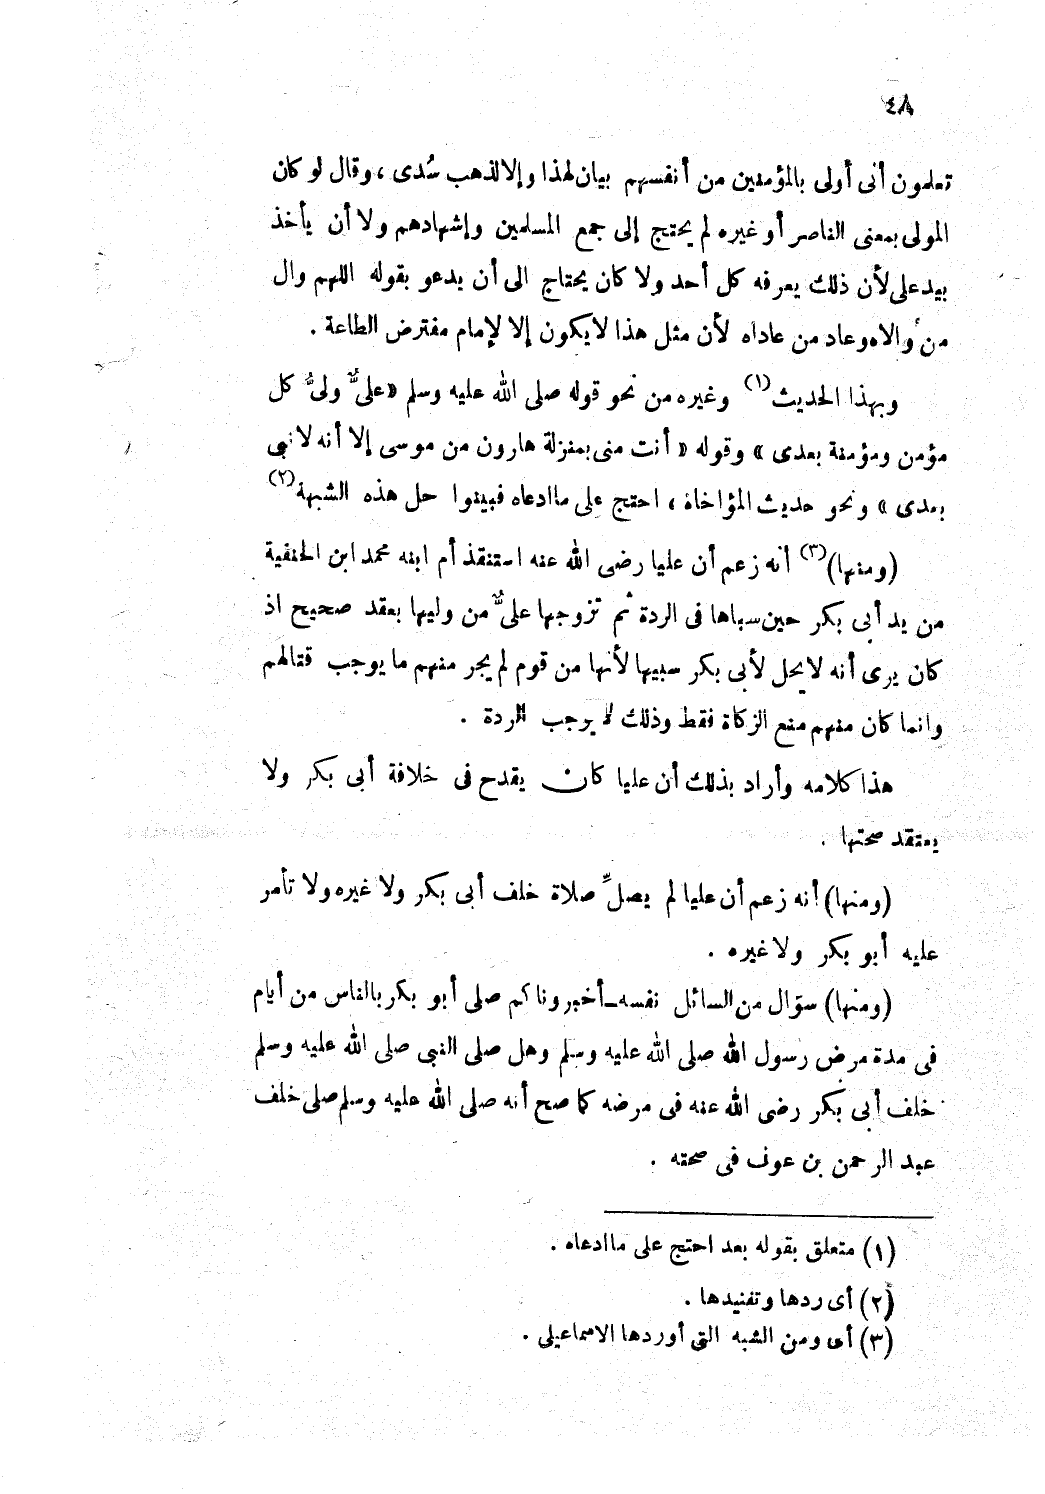 ٤٨
تعلمون أنى أولى بالمؤمنين من أنفسهم بيان لهذا وإلا لذهب سُدى ، وقال لو كان
المولى بمعنى الناصر أو غيره لم يحتج إلى جمع المسلمين وإشهادهم ولا أن يأخذ
بيد على لأن ذلك يعرفه كل أحد ولا كان يحتاج الى أن يدعو بقوله اللهم وال
من والاه وعاد من عاداه لأن مثل هذا لا يكون إلا لإمام مفترض الطاعة .
وبهذا الحديث (١) وغيره من نحو قوله صلى الله عليه وسلم « علىٌّ ولىُّ كل
مؤمن ومؤمنة بعدى » وقوله « أنت منى بمنزلة هارون من موسى إلا أنه لا نبى
بعدى » ونحو حديث المؤاخاة ، احتج على ما ادعاه فبينوا حل هذه الشبهة (٢)
(ومنها) (٣) أنه زعم أن عليا رضى الله عنه استنقذ أم ابنه محمد ابن الحنفية
من يد أبى بكر حين سباها فى الردة ثم تزوجها علىٌّ من وليها بعقد صحيح اذ
كان يرى أنه لا يحل لأبى بكر سبيها لأنها من قوم لم يجر منهم ما يوجب قتالهم
وانما كان منهم منع الزكاة فقط وذلك لا يوجب الردة .
هذا كلامه وأراد بذلك أن عليا كان يقدح فى خلافة أبى بكر ولا
يعتقد صحتها .
(ومنها) أنه زعم أن عليا لم يصلِّ صلاة خلف أبى بكر ولا غيره ولا تأمر
عليه أبو بكر ولا غيره .
(ومنها) سؤال من السائل نفسه - أخبرونا كم صلى أبو بكر بالناس من أيام
فى مدة مرض رسول الله صلى الله عليه وسلم وهل صلى النبى صلى الله عليه وسلم
خلف أبى بكر رضى الله عنه فى مرضه كما صح أنه صلى الله عليه وسلم صلى خلف
عبد الرحمن بن عوف فى صحته .
(١) متعلق بقوله بعد احتج على ما ادعاه .
(٢) أى ردها وتفنيدها .
(٣) أى ومن الشبه التى أوردها الاسماعيلى .